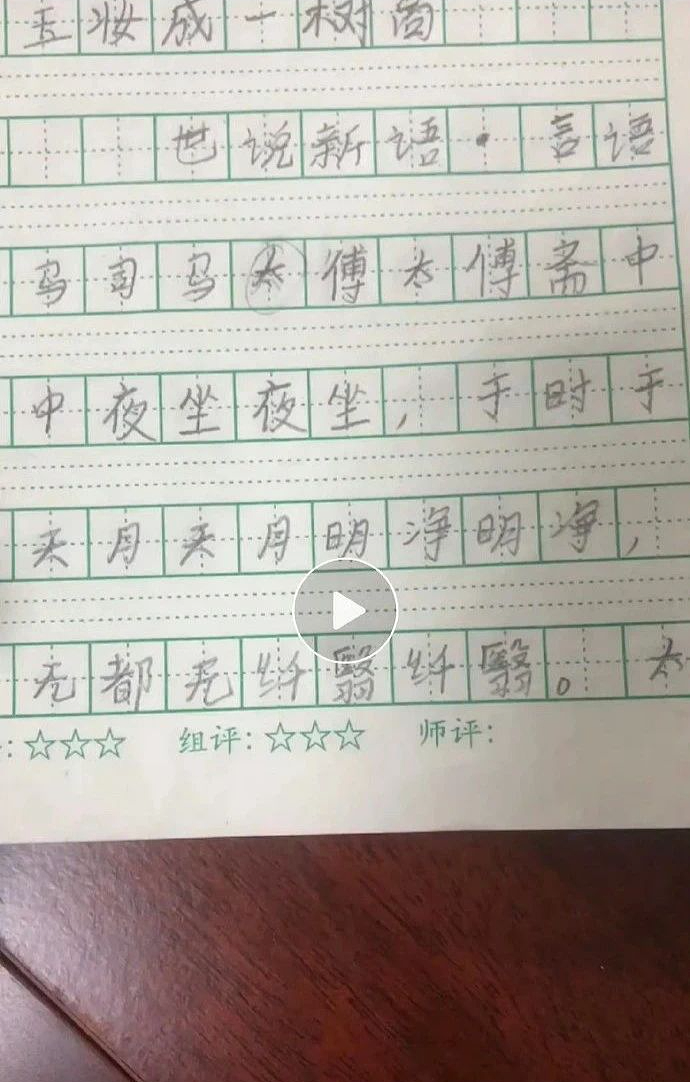 玉妆成一树高
世说新语·言语
马司马太傅太傅斋中
中夜坐夜坐，于时于
天月天月明净明净，
无都无纤翳纤翳。太
:☆☆☆ 组评:☆☆☆ 师评: